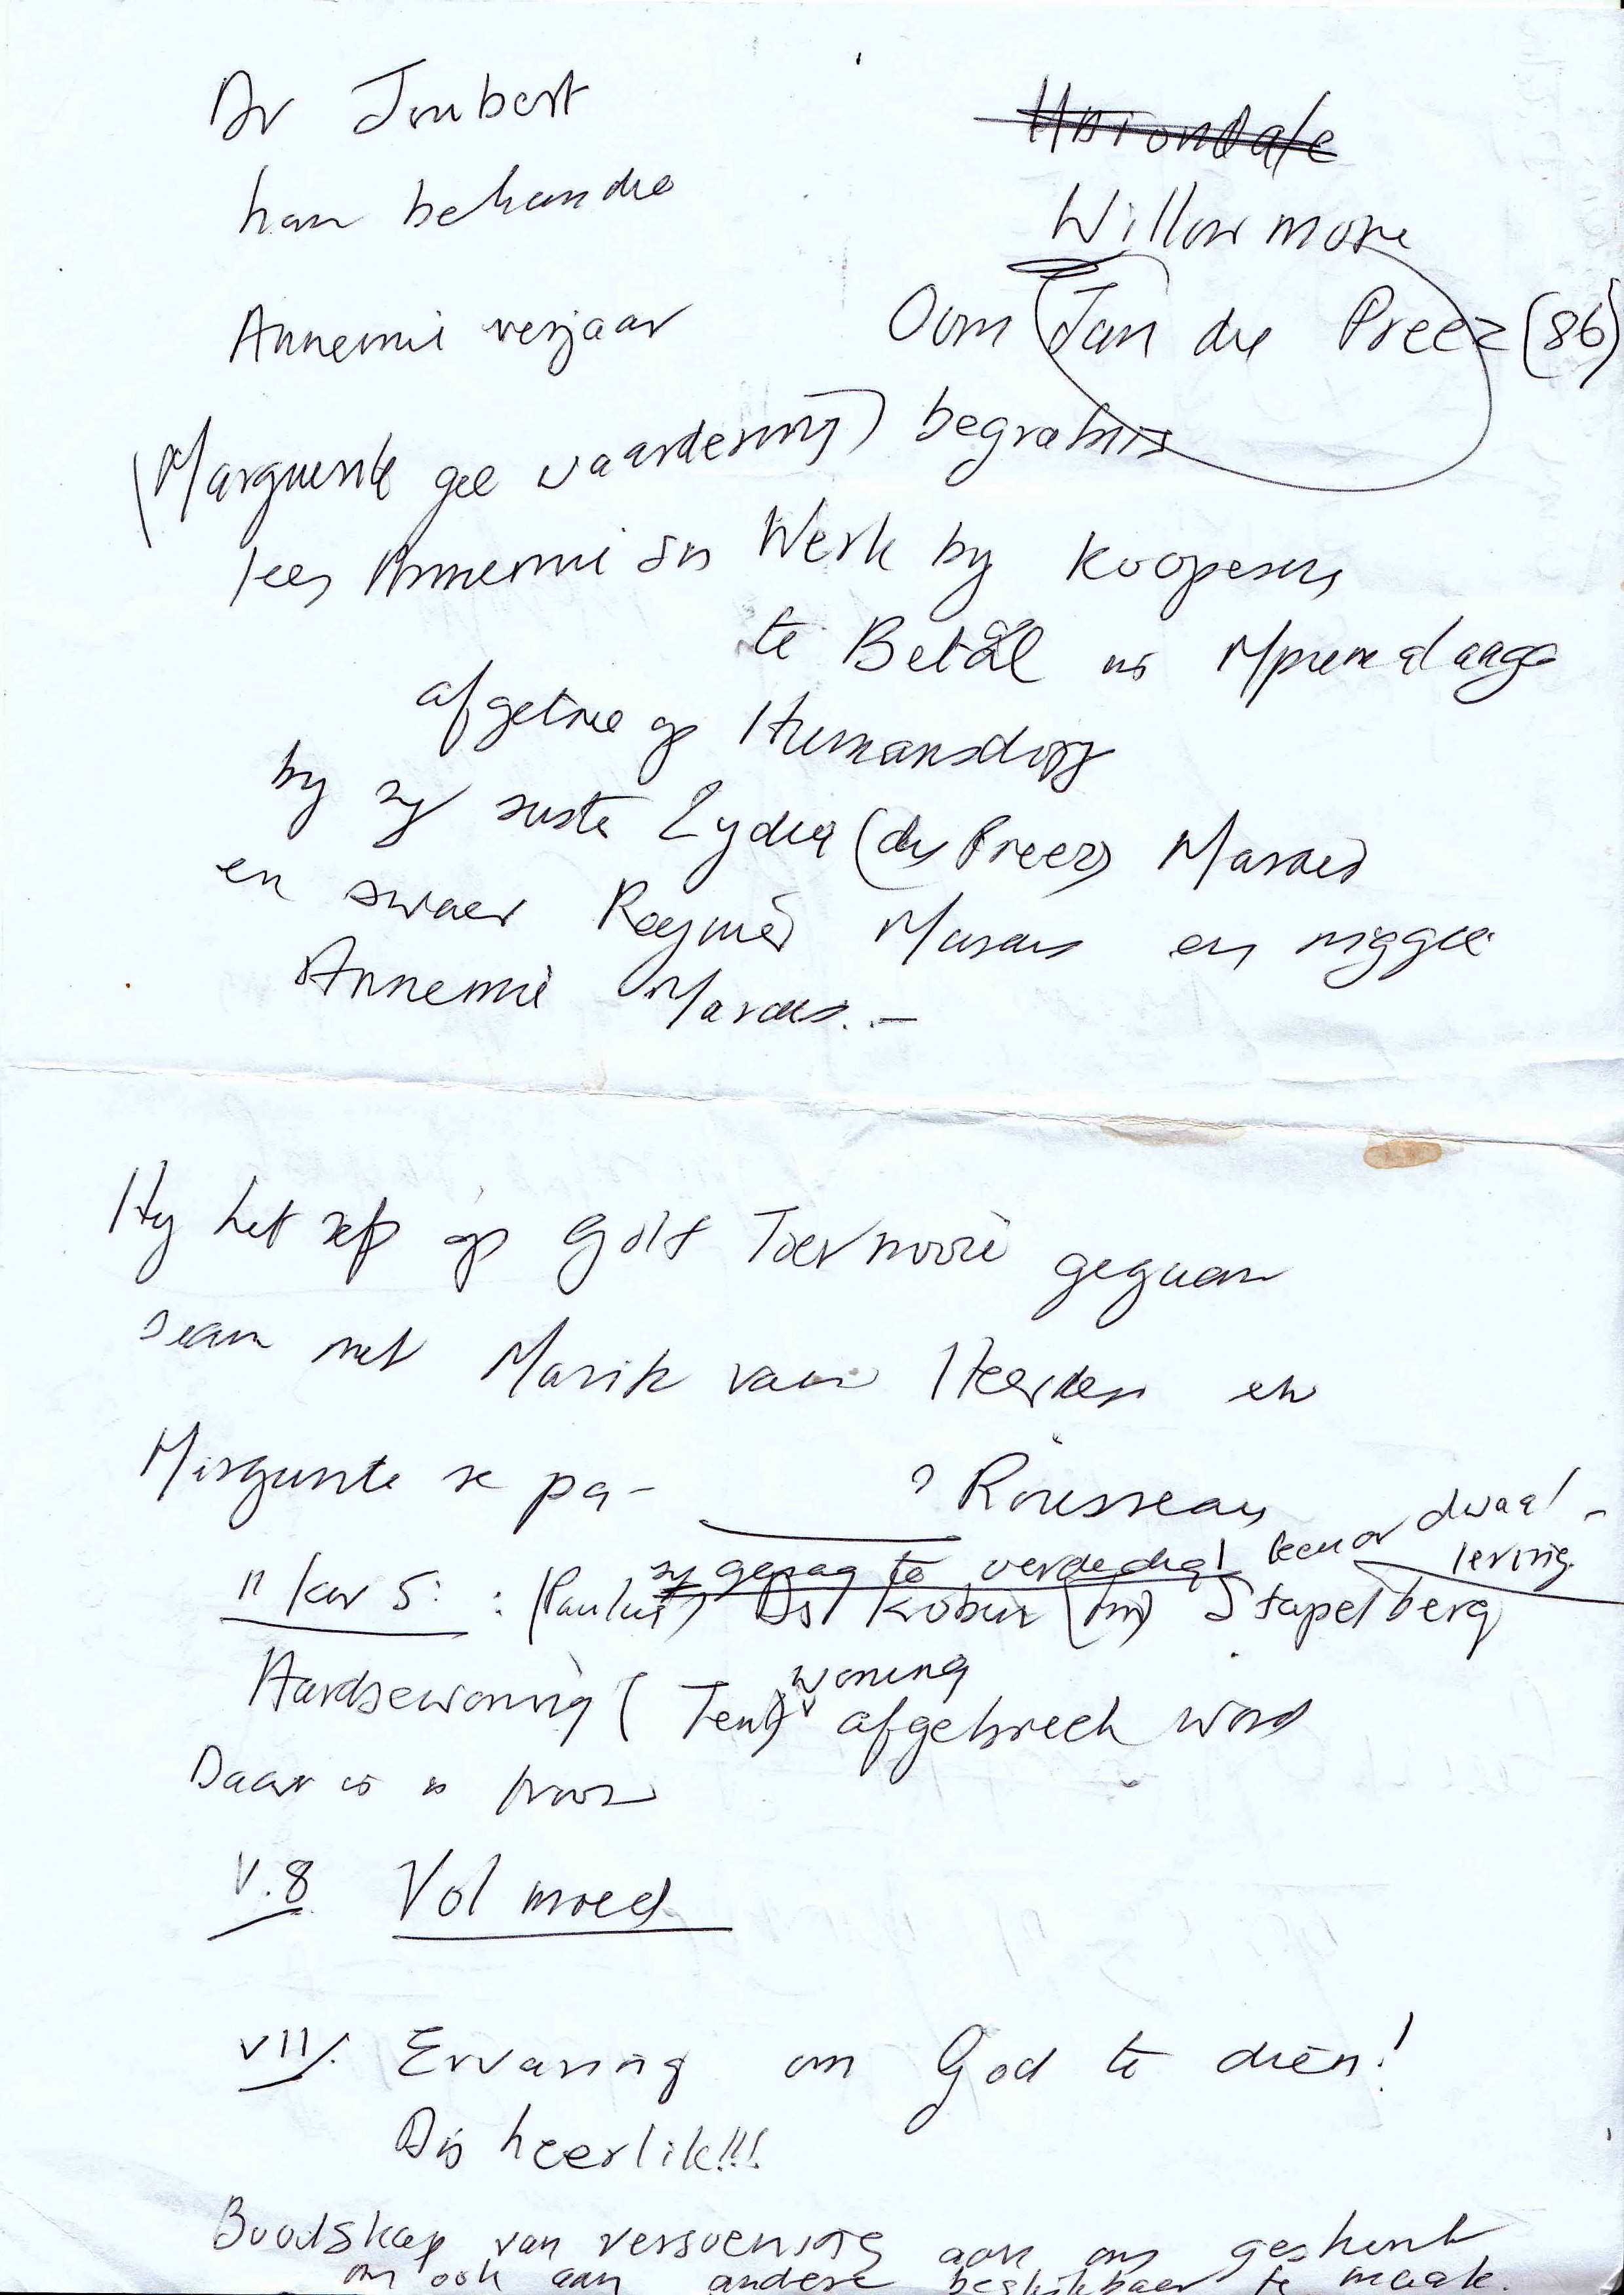 Dr Joubert
~~Uniondale~~
kan behandel
Willowmore
Annemie verjaar
Oom Jan du Preez (86)
(Marguerite gee waardering) begrafnis
lees Annemie Werk by Kooperasie
te Betal in Mpumalanga
afgetree op Humansdorp
by sy suster Lydia (du Preez) Marais
en swaer Marais en niggie
Annemie Marais. -
Hy het self op Golf Toernooie gegaan
saam met van Heerden en
Marguerite se pa - ______ ? Rousseau
sy gesag te verdedig! teenoor dwaal -
lering.
II Kor 5: : (Paulus) Ds Kobus (tin) Stapelberg
woning
Aardsewoning (Tent) afgebreek word
Daar is 'n troos
V.8 Vol moed
V11/. Ervaring om God te dien!
Dis heerlik!!!
Boodskap van versoening aan ons geskenk
om ook aan andere beskikbaar te maak.